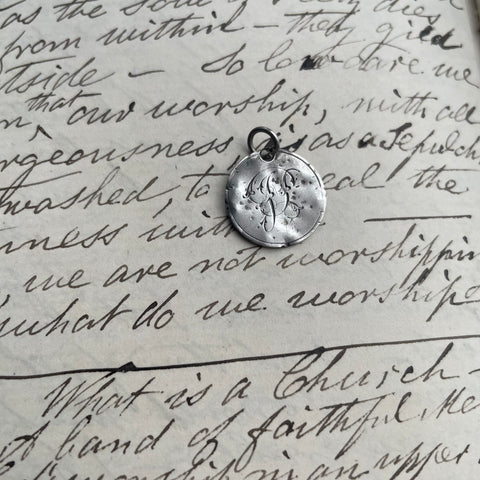 as the soul of
from within — they gild
tside — So low are we
n that our worship, with all
rgeousness is as a Sepulch
washed, to eal the
nness with
we are not worshippin
what do we worship
What is a Church —
A band of faithful Me
worship in an upper